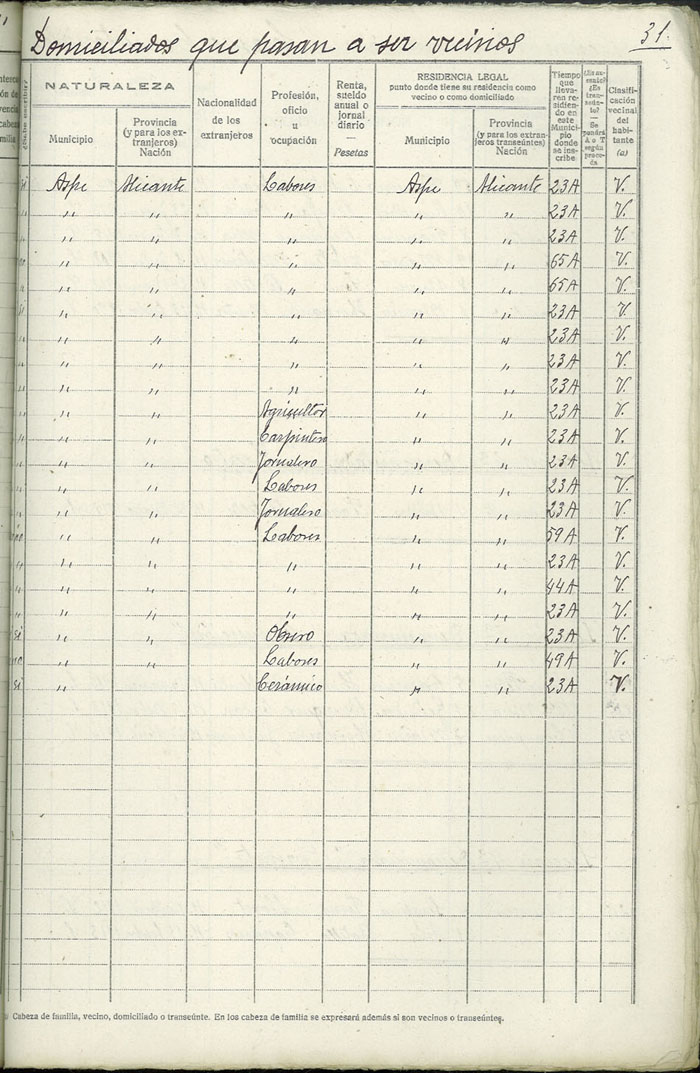 Domiciliados que pasan a ser vecinos 31.
NATURALEZA
Municipio
Provincia (y para los extranjeros) Nación
Nacionalidad de los extranjeros
Profesión, oficio u ocupación
Renta, sueldo anual o jornal diario — Pesetas
RESIDENCIA LEGAL
punto donde tiene su residencia como vecino o como domiciliado
Municipio
Provincia (y para los extranjeros transeúntes) Nación
Tiempo que llevaren residiendo en este Municipio donde se inscribe
¿Es ausente? ¿Es transeúnte? — Se pondrá A o T según proceda
Clasificación vecinal del habitante (a)
si Aspe Alicante Labores Aspe Alicante 23A V.
" " " " " " 23A V.
" " " " " " 23A V.
" " " " " 65A V.
" " " " " 65A V.
si " " " " " 23A V.
" " " " " " 23A V.
" " " " " " 23A V.
" " " " " " 23A V.
" " " Agricultor " " 23A V.
" " " Carpintero " " 23A V.
" " " Jornalero " " 23A V.
" " " Labores " " 23A V.
" " " Jornalero " " 23A V.
" " Labores " " 59A V.
" " " " " " 23A V.
" " " " " " 44A V.
" " " " " " 23A V.
si " " Obrero " " 23A V.
no " " Labores " " 49A V.
si " Cerámico " " 23A V.
Cabeza de familia, vecino, domiciliado o transeúnte. En los cabeza de familia se expresará además si son vecinos o transeúntes.